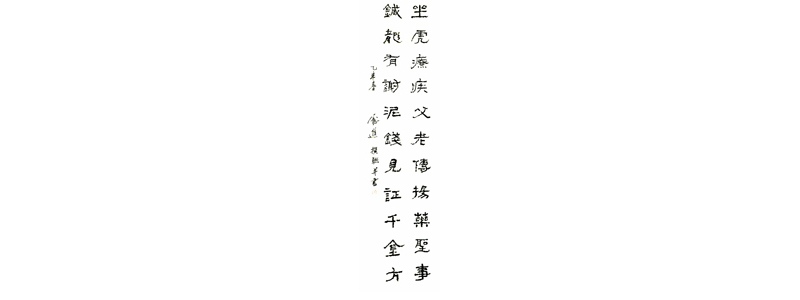 坐虎療疾父老傳揚藥聖事
鍼龍有謝泥錢見証千金方
乙亥春
撰聯并書